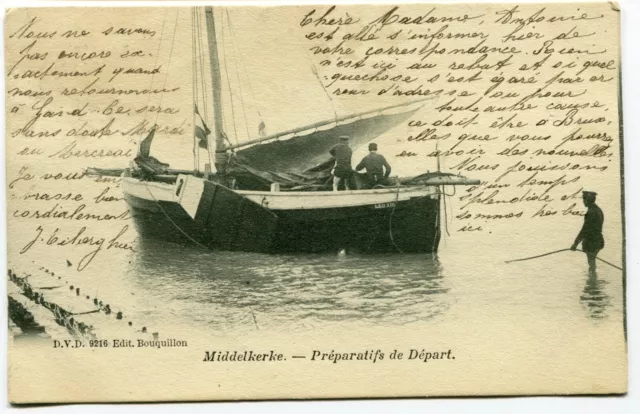 Chère Madame, Antoinie
est allé s'informer hier de
votre correspondance. Rien
n'est ici au rebat et si quel
quechose s'est égaré par er
reur d'adresse ou pour
toute autre cause,
ce doit être à Brux
elles que vous pourr
en avoir des nouvelles.
Nous jouissons
d'un temps
splendide et
sommes très bien
ici.
Nous ne savons
pas encore ex-
actement quand
nous retournerons
à Gand. Ce sera
sans doute Mardi
ou Mercredi.
Ja vous em
brasse bien
cordialement
D.V.D. 9216 Edit. Bouquillon
Middelkerke. — Préparatifs de Départ.